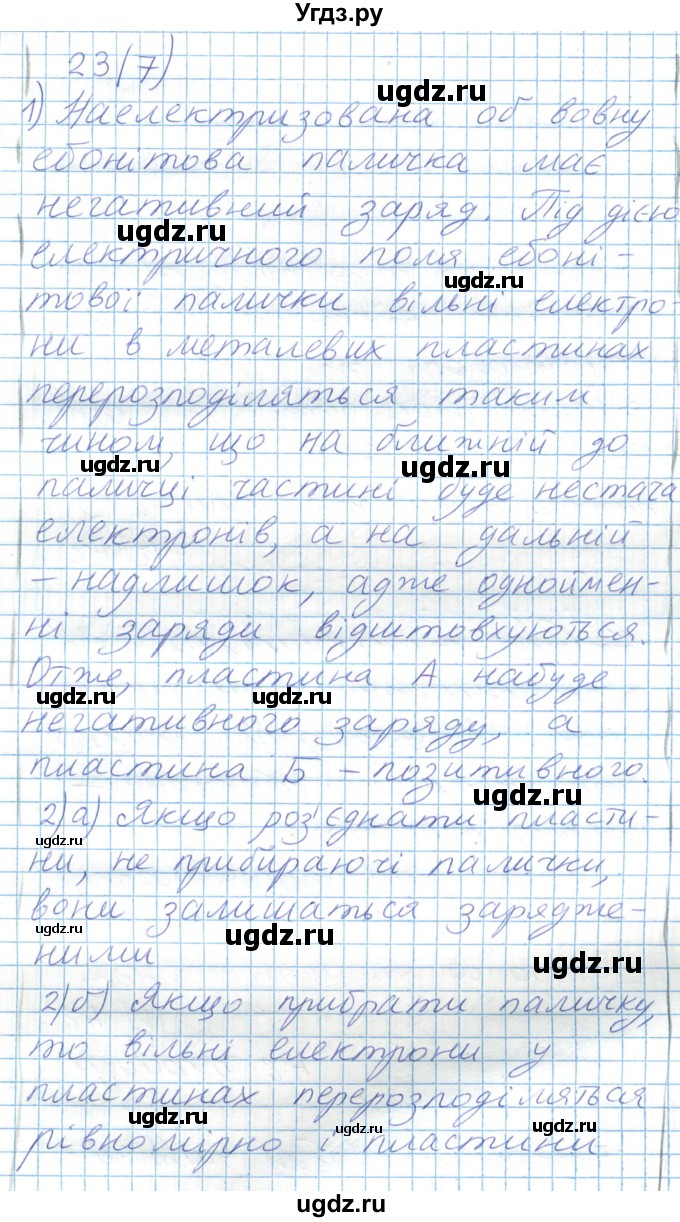 Угдз.ру
23(7)
ugdz.ru
1) Наелектризована об вовну
ебонітова паличка має
негативний заряд. Під дією
ugdz.ru
електричного поля ебоні-
ugdz.ru
тової палички вільні електро-
ни в металевих пластинах
перерозподіляться таким
чином, що на ближній до
ugdz.ru ugdz.ru
паличці частині буде нестача
електронів, а на дальній
- надлишок, адже одноймен-
ні заряди відштовхуються.
Отже, пластина А набуде
ugdz.ru ugdz.ru
негативного заряду, а
пластина Б - позитивного.
2)а) Якщо роз'єднати пласти-
ugdz.ru
ни, не прибираючі палички,
вони залишаться зарядже-
ugdz.ru ugdz.ru
ними
ugdz.ru
2)б) Якщо прибрати паличку,
то вільні електрони у
пластинах перерозподіляться
ugdz.ru ugdz.ru
рівномірно і пластини
ugdz.ru